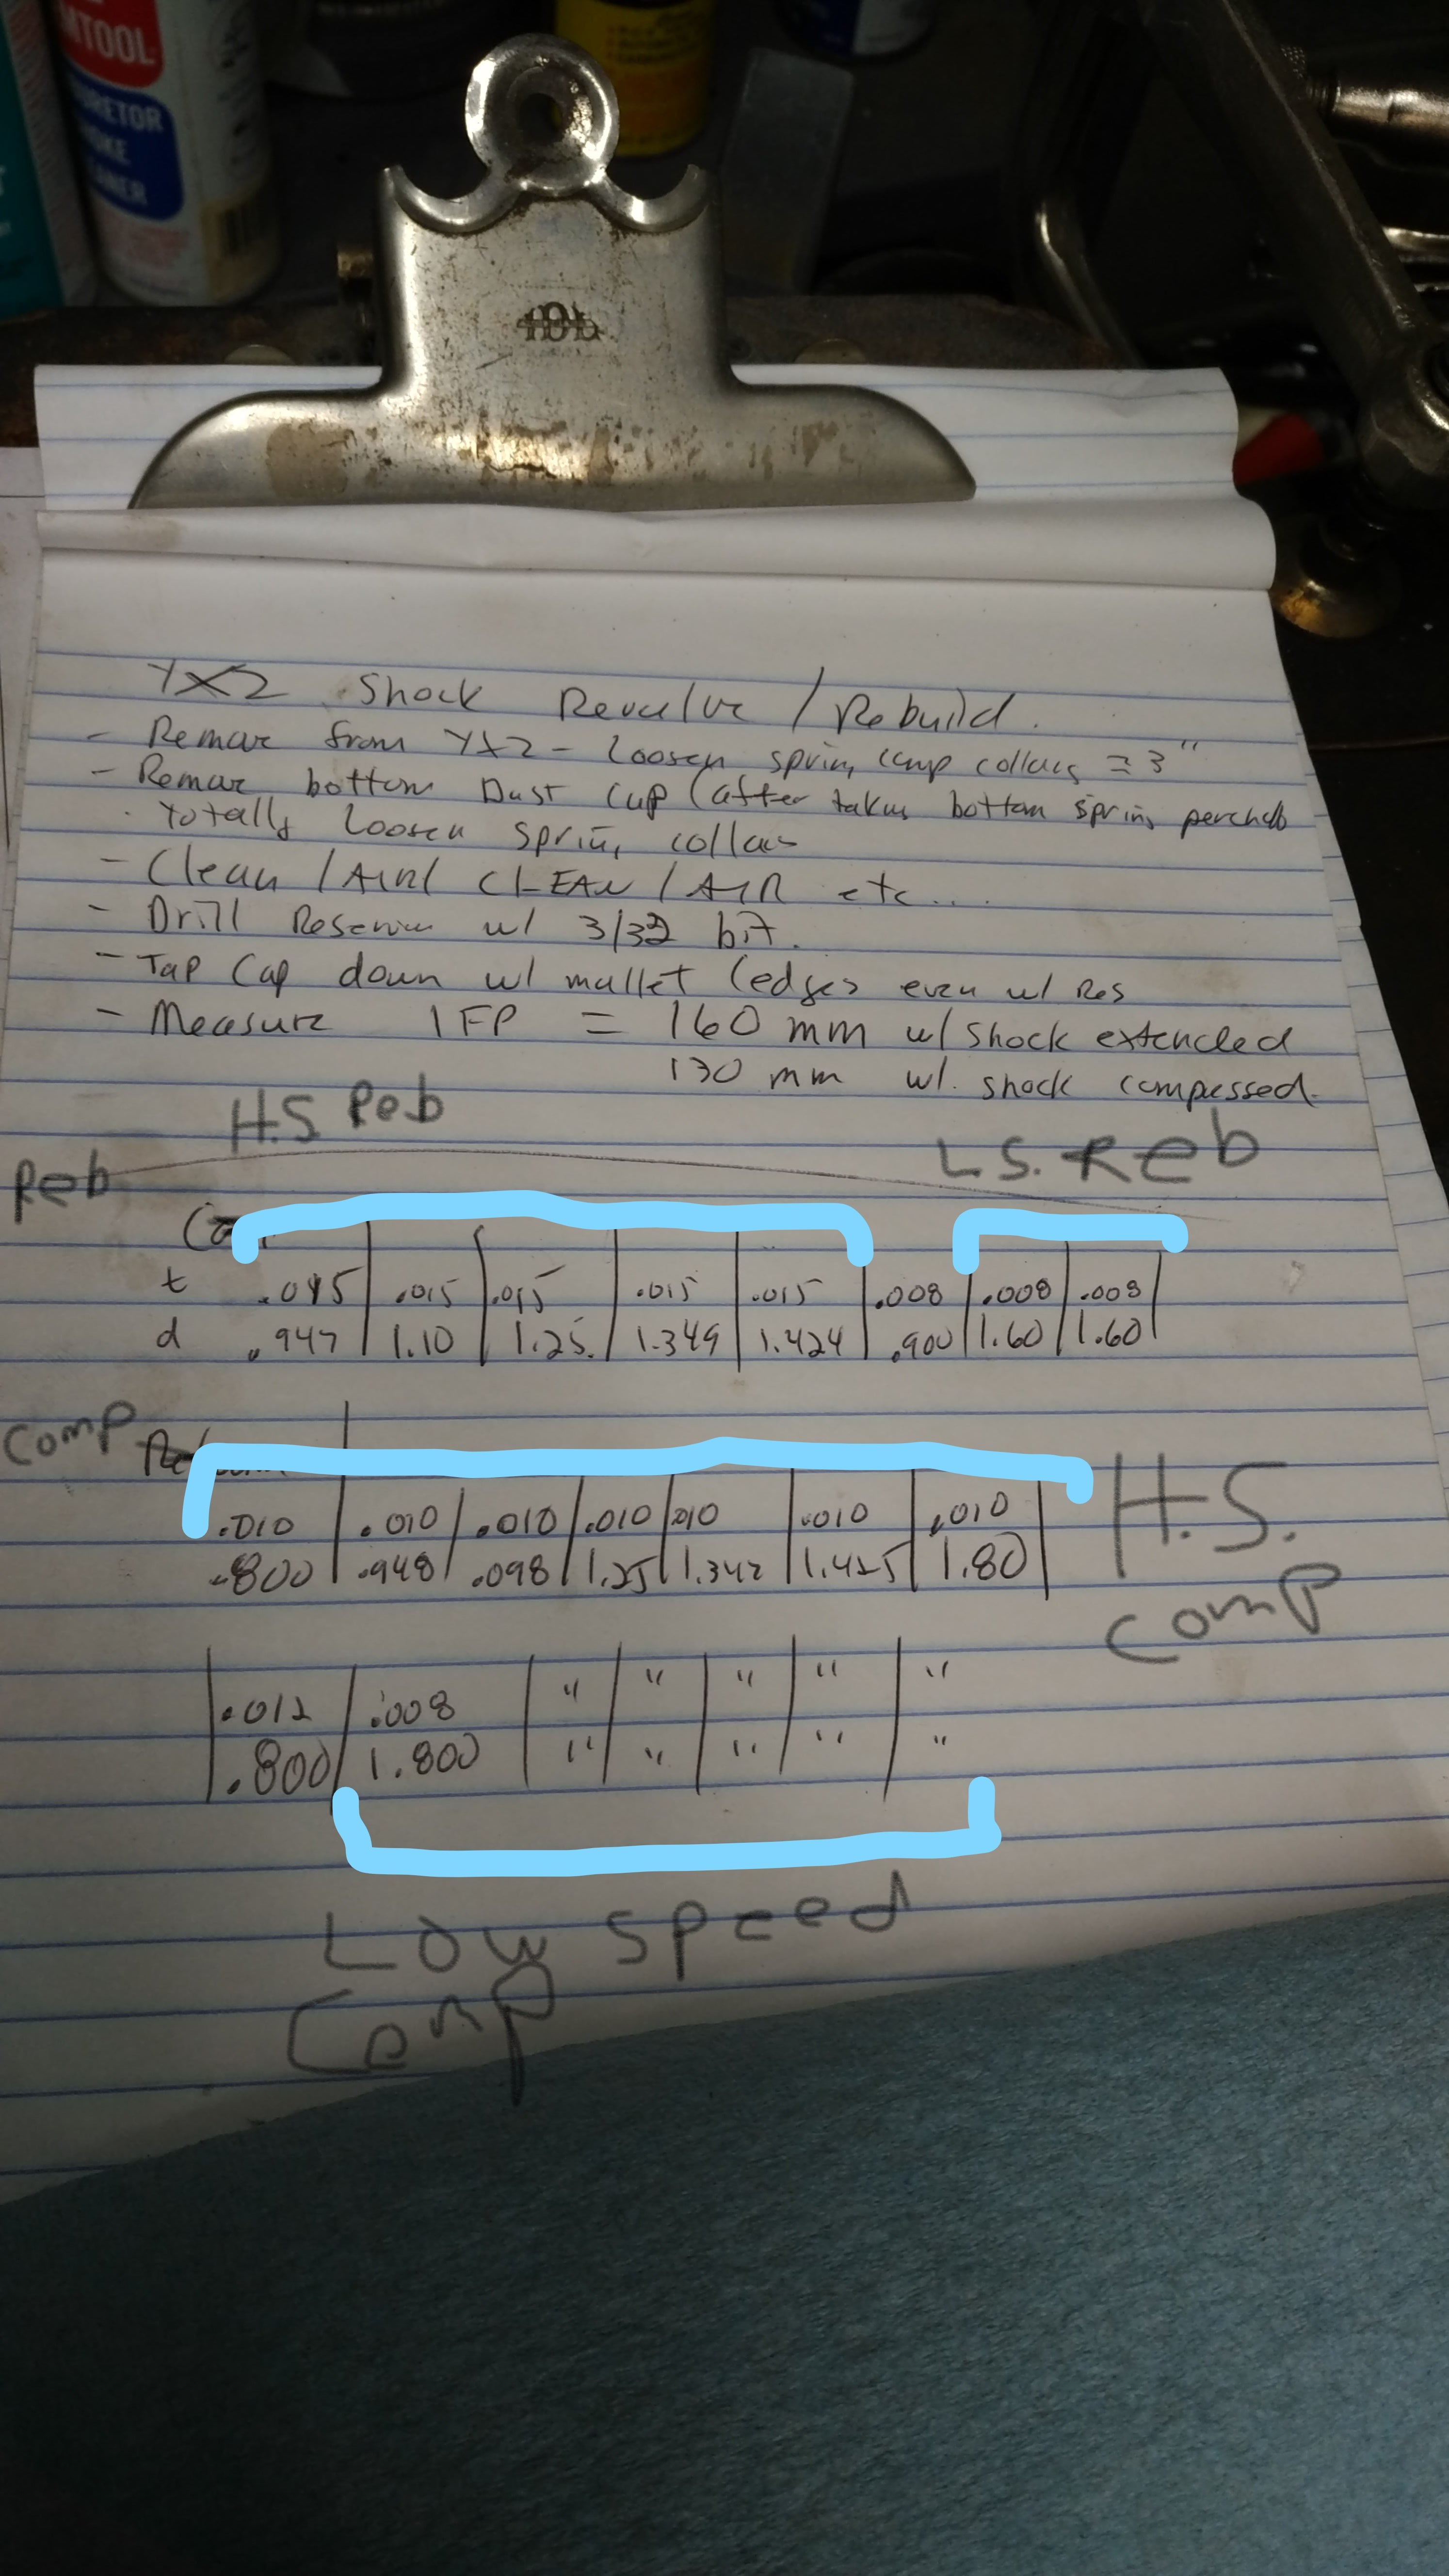 MTOOL
URETOR
OKE
ANER
YXZ Shock Revalve / Rebuild.
- Remove from YXZ - loosen spring comp collars ≈ 3"
- Remove bottom Dust Cup (after taking bottom spring perch off
. Totally loosen spring collars
- Clean / AIR / CLEAN / AIR etc...
- Drill Reservoir w/ 3/32 bit.
- Tap Cap down w/ mallet (edges even w/ Res
- Measure IFP = 160 mm w/ shock extended
130 mm w/. shock compressed.
H.S Reb
L.S. Reb
Reb
t .015 .015 .015 .015 .015 .008 .008 .008
d .947 1.10 1.25. 1.349 1.424 .900 1.60 1.60
Comp
.010 .010 .010 .010 .010 .010 .010
.800 .948 .098 1.25 1.342 1.425 1.80
H.S.
comp
.012 .008 " " " " "
.800 1.800 " " " " "
Low speed
Comp